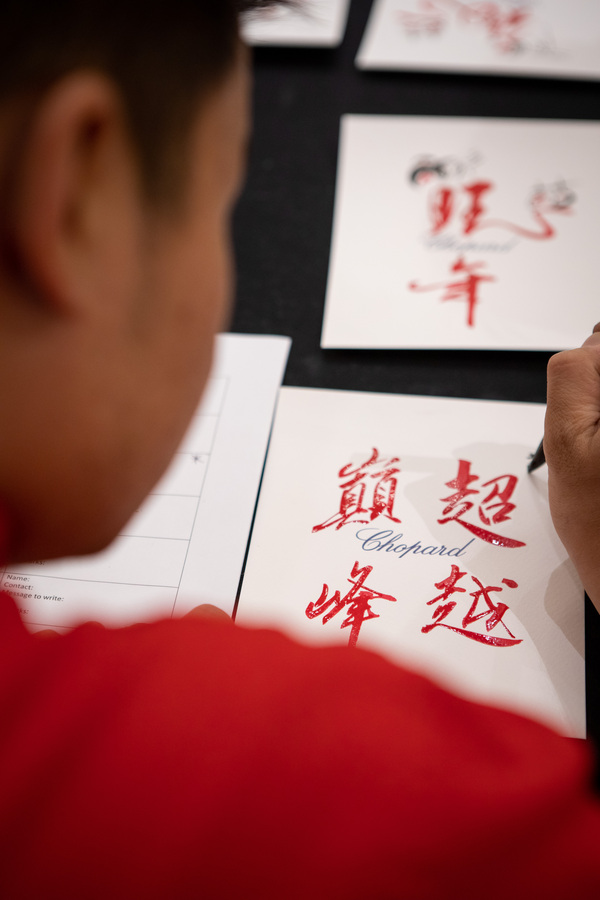 旺
Chopard
年
超越
巔峰
Chopard
Name:
Contact:
Message to write: